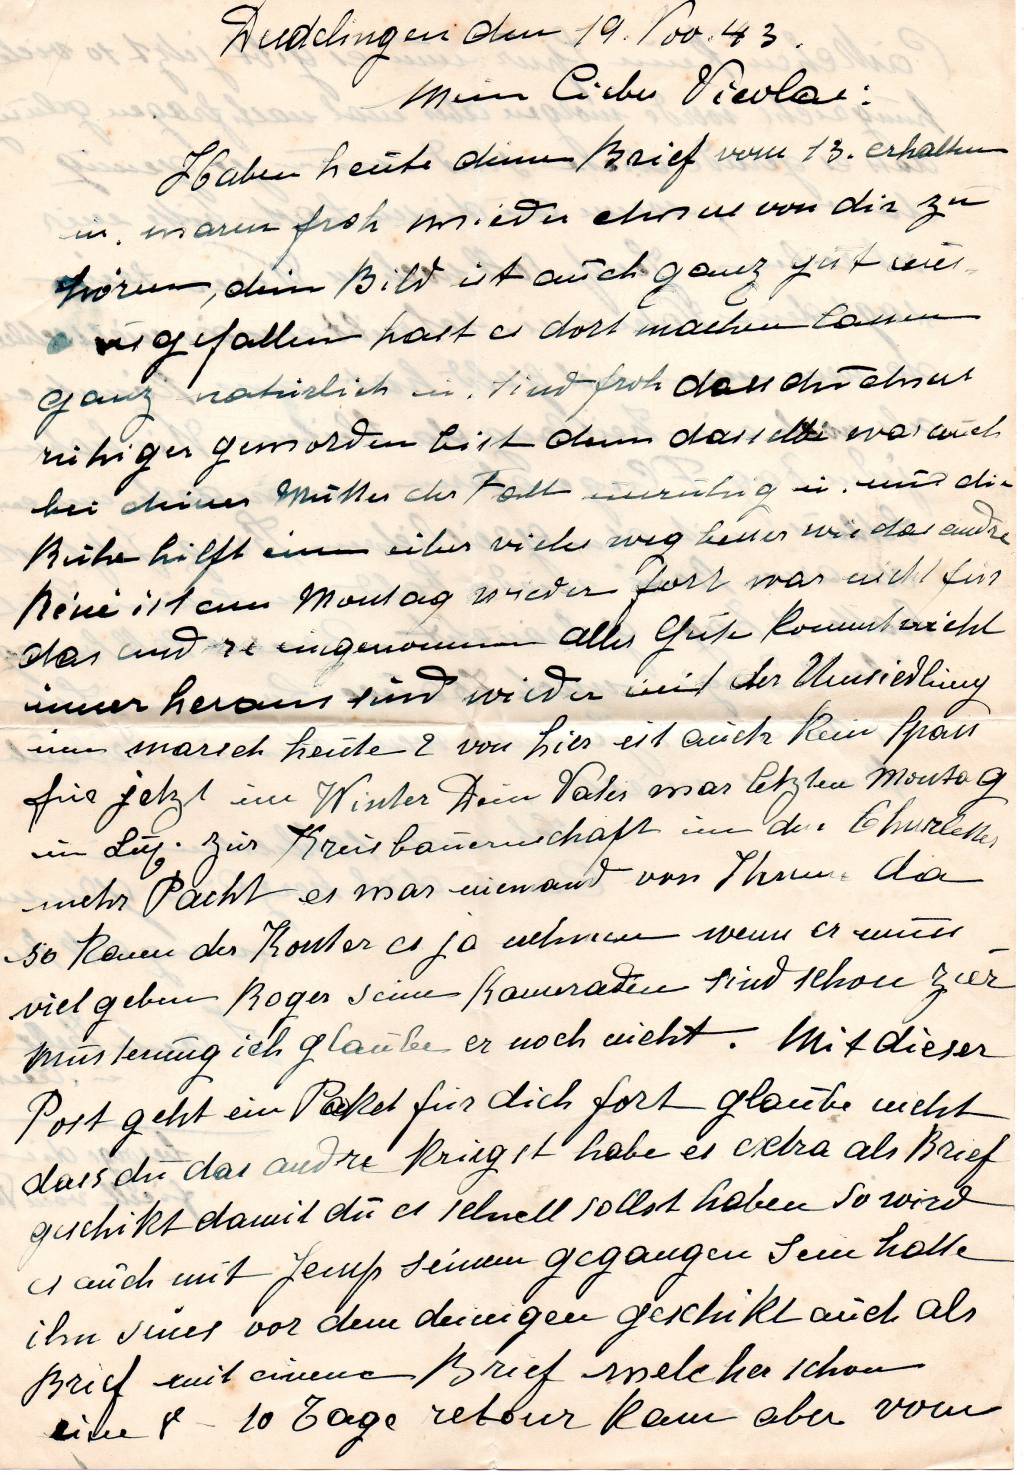 Düdelingen den 19. Nov. 43.
Mein Lieber Nicolas:
Haben heute deinen Brief vom 13. erhalten
u. waren froh wieder etwas von dir zu
hören, dein Bild ist auch ganz gut
ausgefallen hast es dort machen lassen
ganz natürlich u. sind froh dass dü etwas
rühiger geworden bist denn dasselbe war auch
bei deiner Mütter der Fall ünrühig u. nün die
Rühe hilft einen über vieles weg besser wie das andre
Réné ist am Montag wieder fort war nicht für
das eingenommen alles Güte kommt nicht
immer heraus sind wieder mit der Umsiedlüng
im marsch heüte 2 von hier ist aüch kein Spass
für jetzt im Winter Dein Vater war letzten Montag
in Lux. zür Kreisbaüernschaft üm der
mehr Pacht es war niemand von Ihnen da
so kann der es ja nehmen wenn er müss
viel geben Roger seine Kameraden sind schon zür
Müsterüng ich glaübe er noch nicht. Mit dieser
Post geht ein Paket für dich fort glaübe nicht
dass dü das andre kriegst habe es extra als Brief
geschikt damit dü es schnell sollst haben so wird
es aüch mit Jemp seinem gegangen sein hatte
ihm seines vor dem deinigen geschikt aüch als
Brief mit einem Brief welcher schon
eine 8 - 10 Tage retour kam aber vom